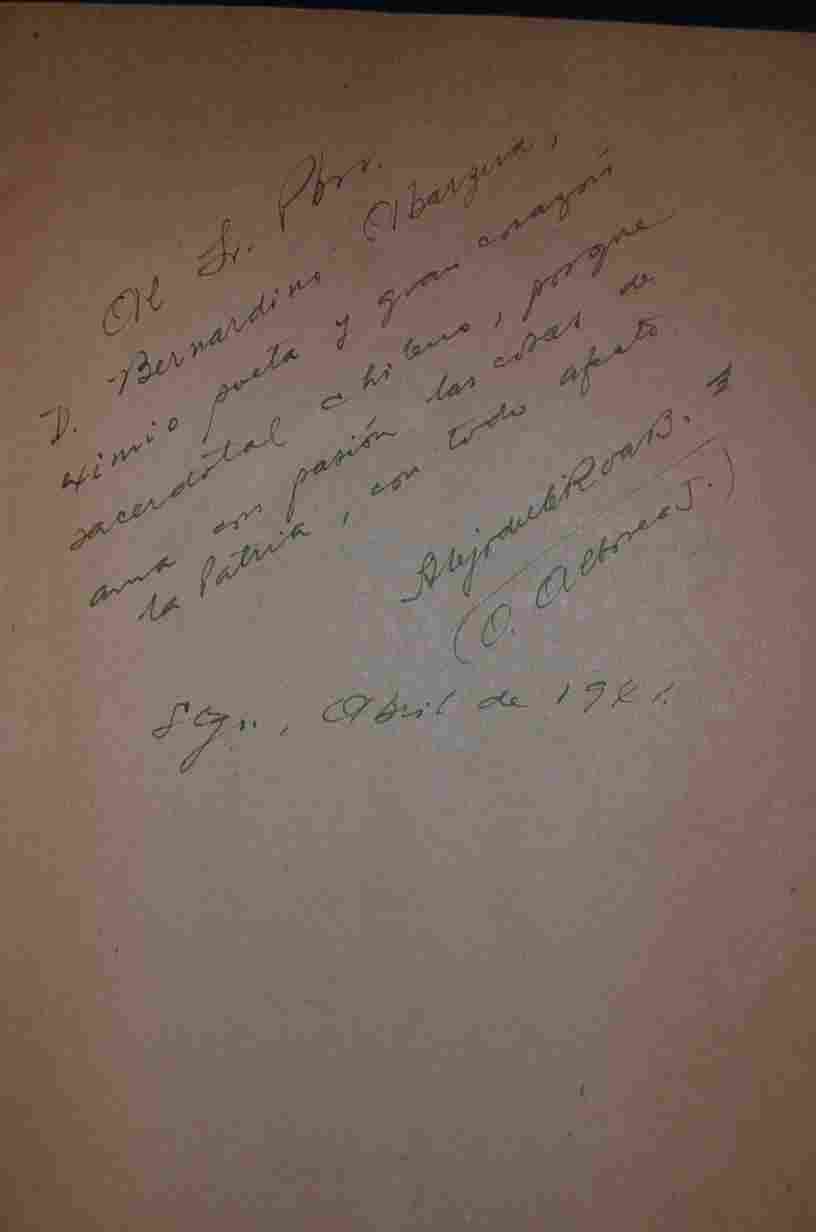 Al Sr. Pbro.
D. Bernardino Abarzúa,
eximio poeta y gran corazón
sacerdotal chileno, porque
ama con pasión las cosas de
la Patria, con todo afecto
Alejo de la Roa B.
(O. Altorea J.)
Stgo., Abril de